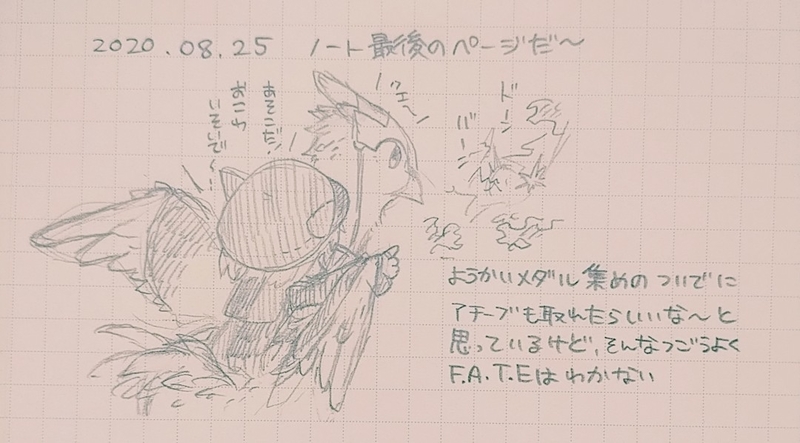 2020.08.25 ノート最後のページだ〜
クエ〜
あそこだ!
おこわ
いそいで〜!
ドーン
バーン
ようかいメダル集めのついでに
アチーブも取れたらいいな〜と
思っているけど、そんなつごうよく
F.A.T.Eはわかない